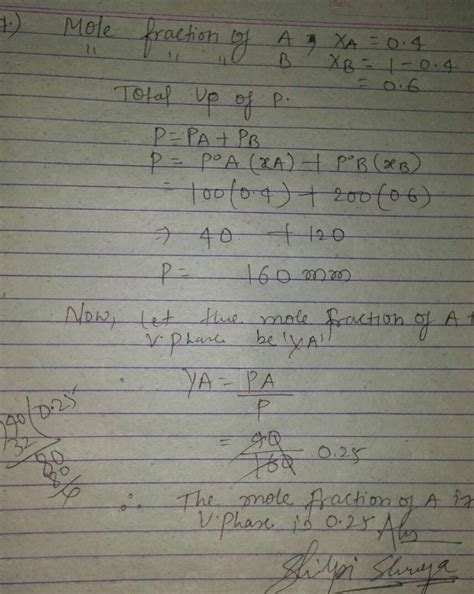 7.) Mole fraction of A, xA = 0.4
" " " B xB = 1-0.4
= 0.6
Total Vp of P.
P = PA + PB
P = P°A (xA) + P°B (xB)
= 100(0.4) + 200(0.6)
⇒ 40 + 120
P = 160 mm
Now, let the mole fraction of A
V. phase be 'YA'
YA = PA
P
= 40
160 0.25
40(0.25
32
80
80
∴ The mole fraction of A in
V. phase is 0.25 Ans
Shilpi